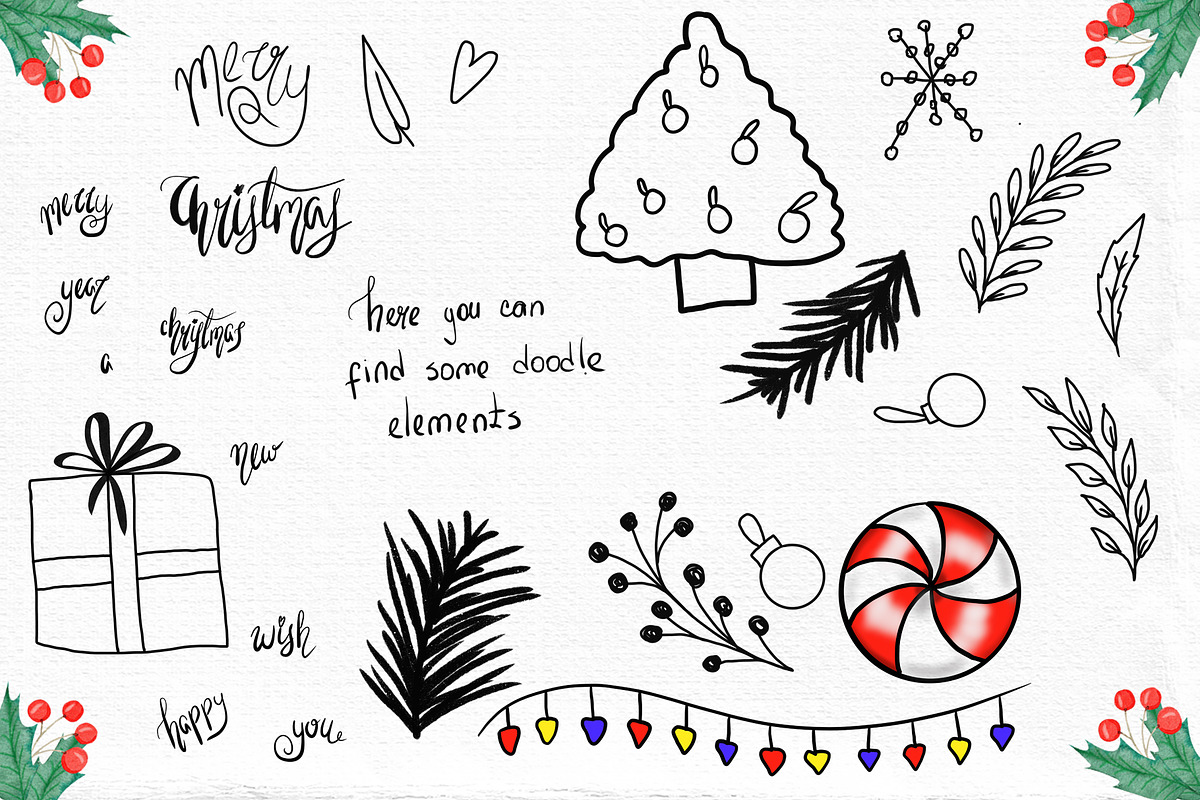 Merry
Christmas
merry
year
christmas
a
here you can
find some doodle
elements
new
wish
happy
you